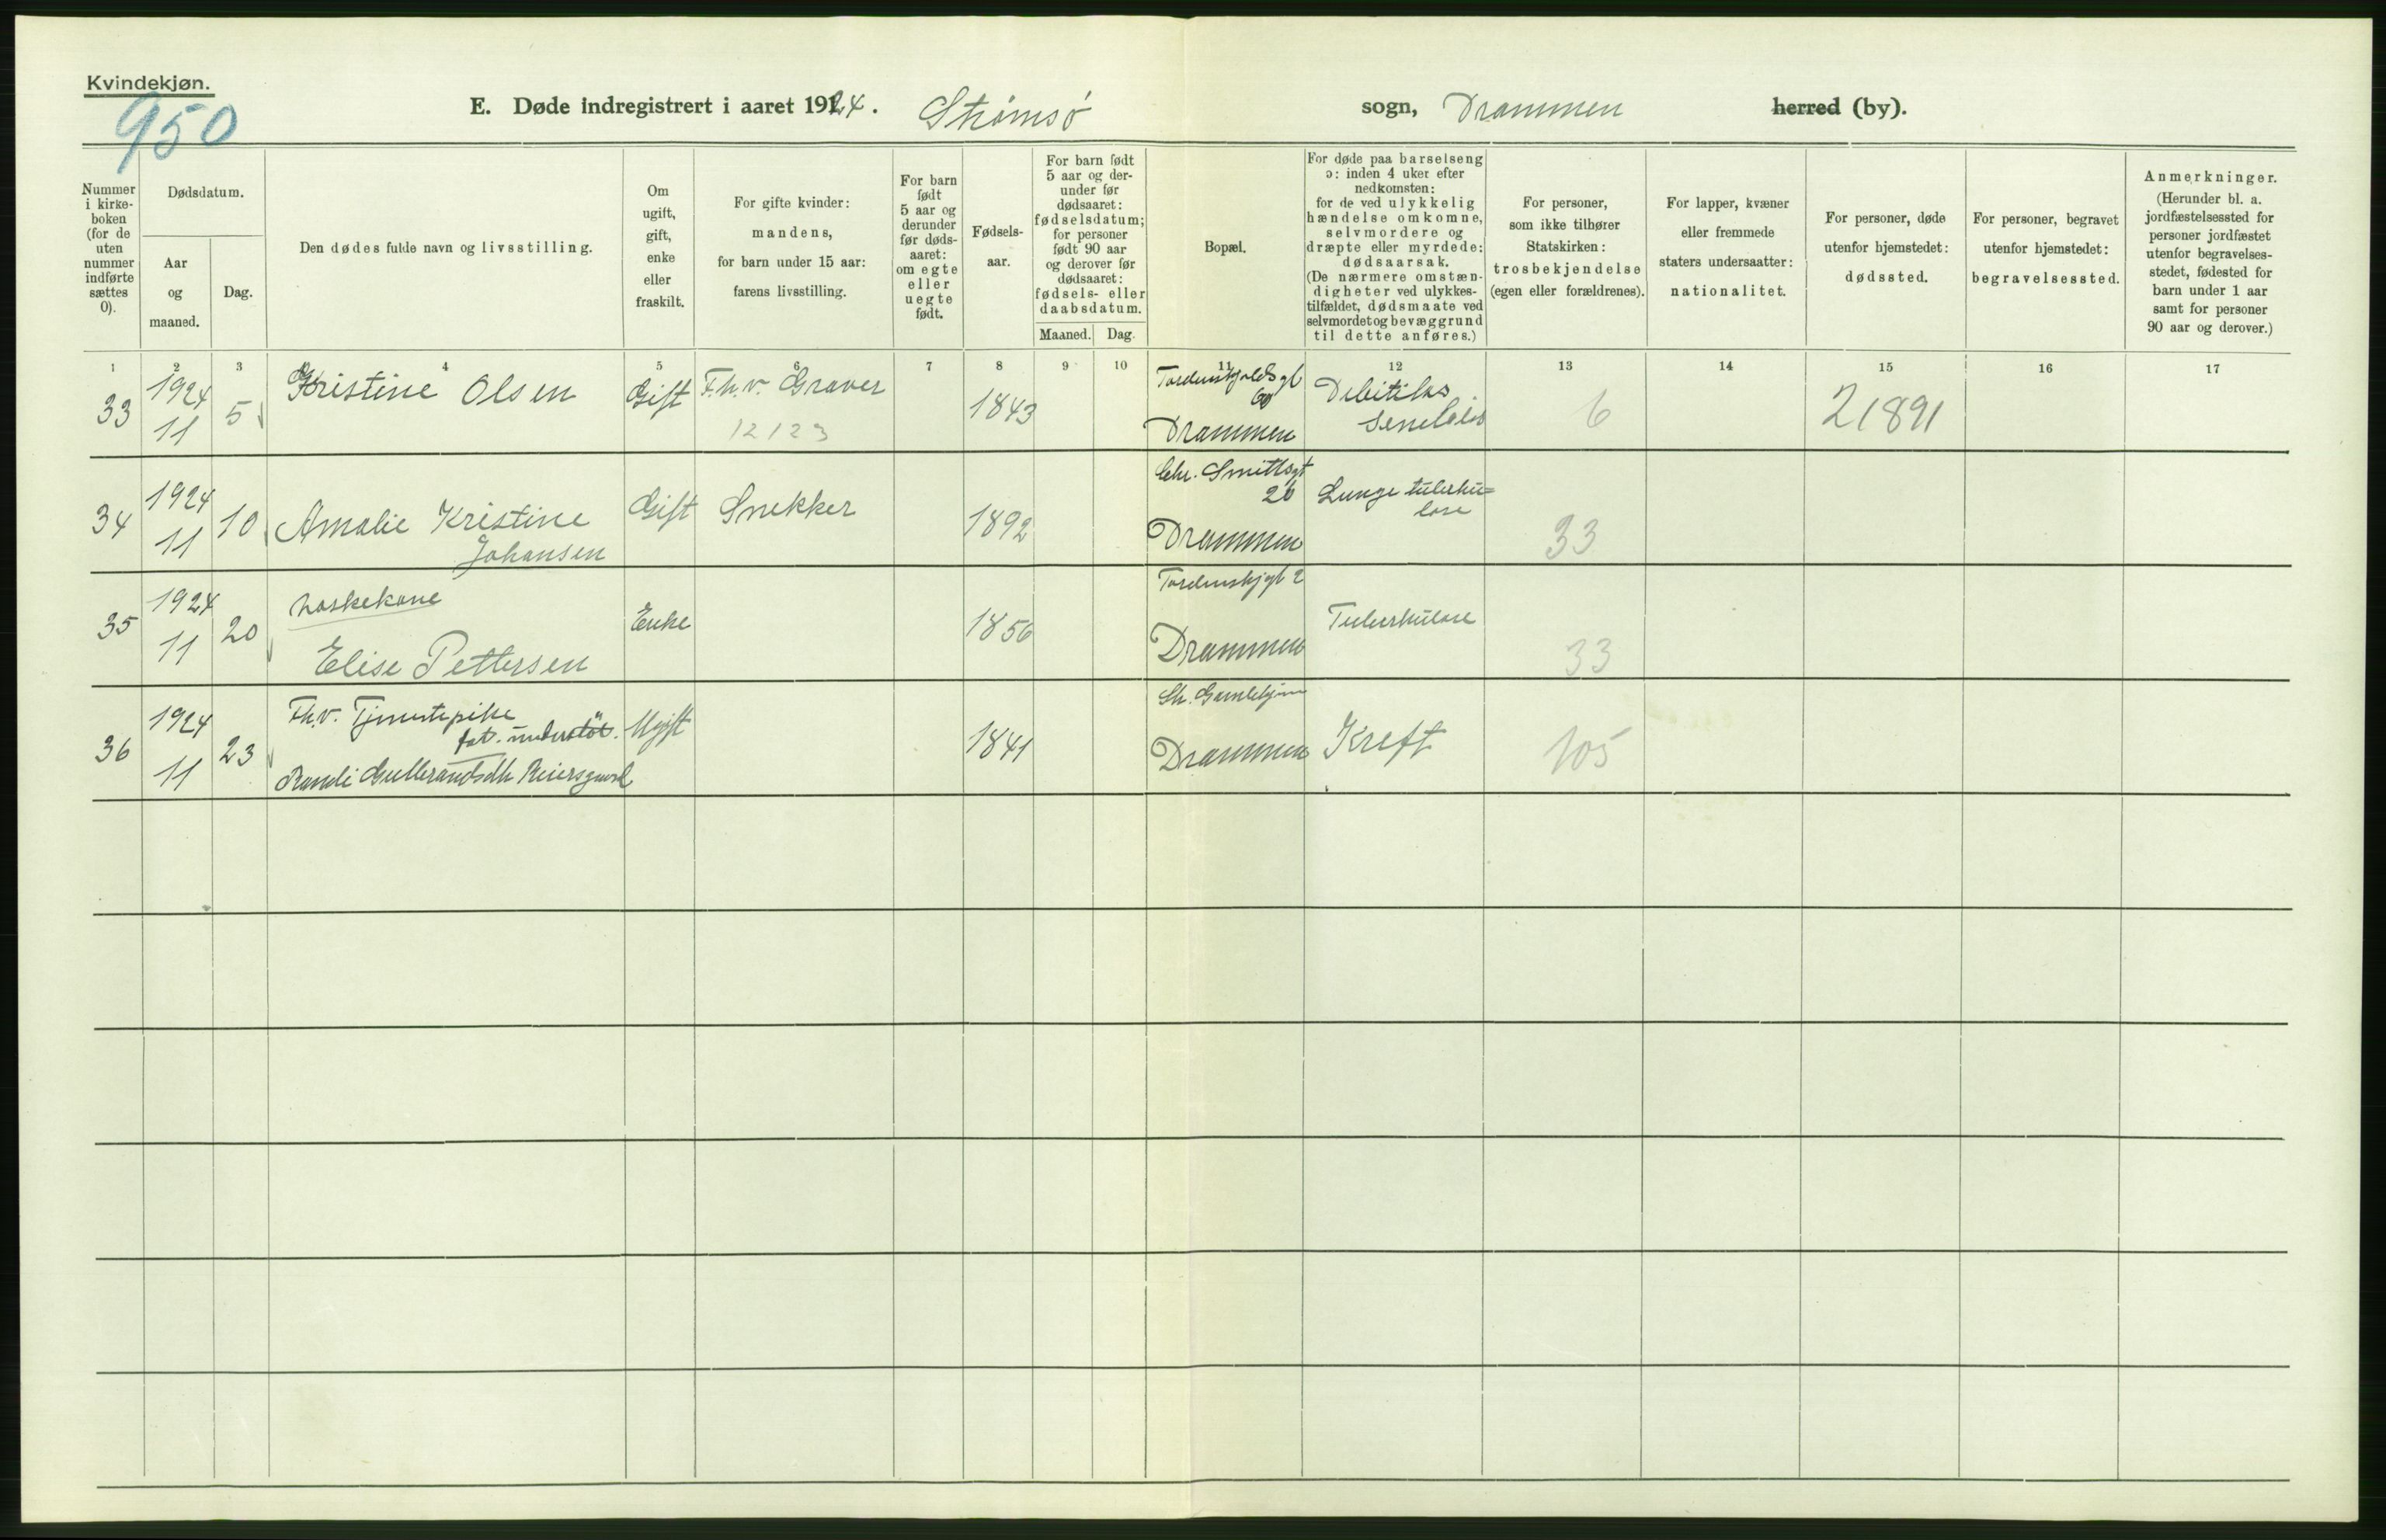 Kvindekjøn.
950
E. Døde indregistrert i aaret 1924. Strømsø sogn, Drammen herred (by).
Nummer i kirke- boken (for de uten nummer indførte sættes 0).
Dødsdatum.
Aar og maaned.
Dag.
Den dødes fulde navn og livsstilling.
Om ugift, gift, enke eller fraskilt.
For gifte kvinder: mandens, for barn under 15 aar: farens livsstilling.
For barn født 5 aar og derunder før døds- aaret: om egte eller uegte født.
Fødsels- aar.
For barn født 5 aar og der- under før dødsaaret: fødselsdatum; for personer født 90 aar og derover før dødsaaret: fødsels- eller daabsdatum.
Maaned. Dag.
Bopæl.
For døde paa barselseng ɔ: inden 4 uker efter nedkomsten: for de ved ulykkelig hændelse omkomne, selvmordere og dræpte eller myrdede: dødsaarsak. (De nærmere omstæn- digheter ved ulykkes- tilfældet, dødsmaate ved selvmordet og bevæggrund til dette anføres.)
For personer, som ikke tilhører Statskirken: trosbekjendelse (egen eller forældrenes).
For lapper, kvæner eller fremmede staters undersaatter: nationalitet.
For personer, døde utenfor hjemstedet: dødssted.
For personer, begravet utenfor hjemstedet: begravelsessted.
Anmerkninger. (Herunder bl. a. jordfæstelsessted for personer jordfæstet utenfor begravelses- stedet, fødested for barn under 1 aar samt for personer 90 aar og derover.)
1 2 3 4 5 6 7 8 9 10 11 12 13 14 15 16 17
33 1924 11 5 Kristine Olsen Gift F.h.v. Graver 12123 1843 Tordenskjoldsgt 60 Drammen Debilitas senilis 6 21891
34 1924 11 10 Amalie Kristine Johansen Gift Snekker 1892 Chr. Smittsgt 26 Drammen Lunge tuberku= lose 33
35 1924 11 20 Vaskekone Elise Pettersen Enke 1856 Tordenskjgt 2 Drammen Tuberkulose 33
36 1924 11 23 Fh.v. Tjenestepike fat. understøt. Randi Gulbrandsdtr Reiersgaard Ugift 1841 St. Gamlehjem Drammen Kreft 105